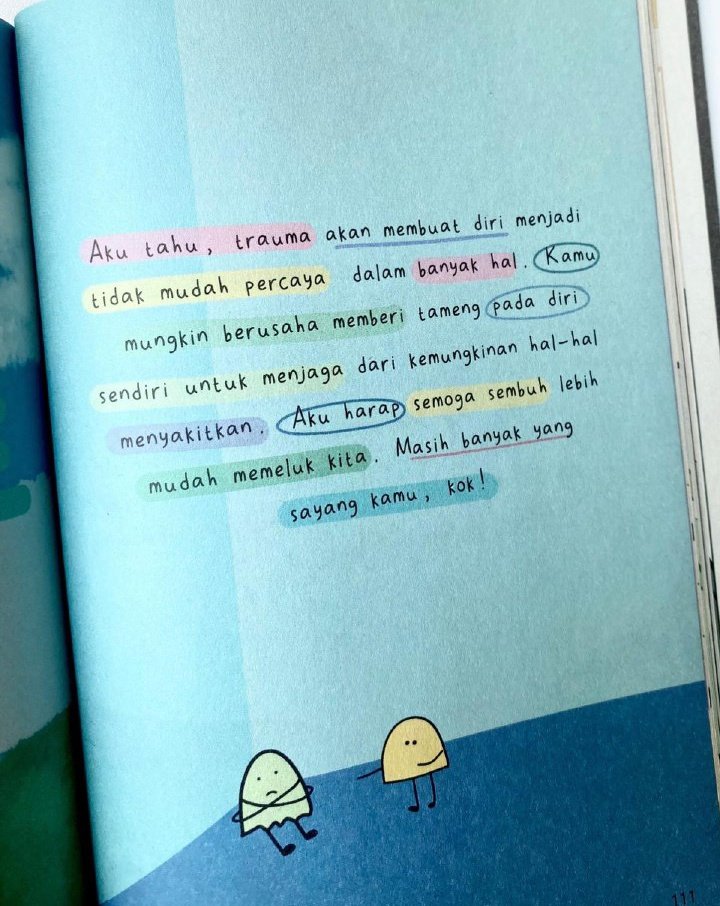 Aku tahu, trauma akan membuat diri menjadi
tidak mudah percaya dalam banyak hal. Kamu
mungkin berusaha memberi tameng pada diri
sendiri untuk menjaga dari kemungkinan hal-hal
menyakitkan. Aku harap semoga sembuh lebih
mudah memeluk kita. Masih banyak yang
sayang kamu, kok!
111